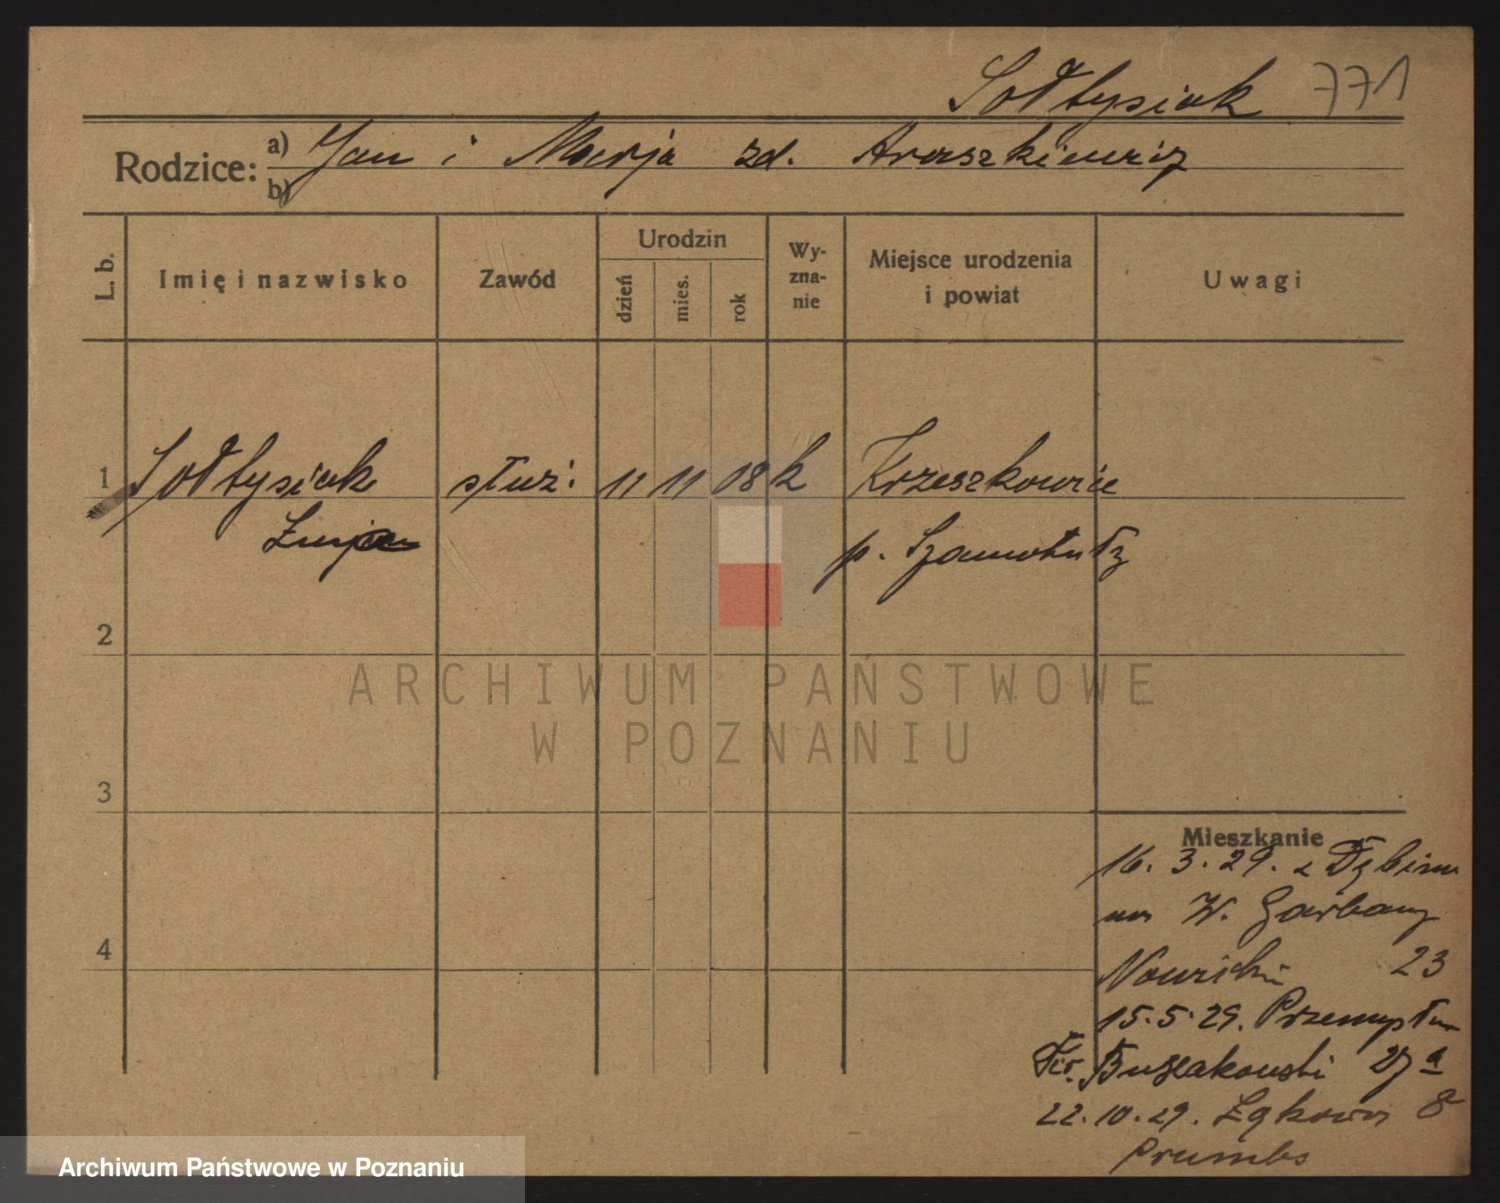 Sołtysiak 771
Rodzice: a) Jan i Marja zd. Araszkiewicz
b)
L. b.
Imię i nazwisko
Zawód
Urodzin
dzień
mies.
rok
Wy-
zna-
nie
Miejsce urodzenia
i powiat
Uwagi
1 Sołtysiak służ. 11 11 08 k Krzeszkowice
p. Szamotuły
2
3
4
Mieszkanie
16. 3. 29. z
W. Garbary
Nowicki 23
15. 5. 29. Przemysłowa
Buszakowski 27 a
22. 10. 29. Łąkowa 8
Prumbs
ARCHIWUM PAŃSTWOWE
W POZNANIU
Archiwum Państwowe w Poznaniu